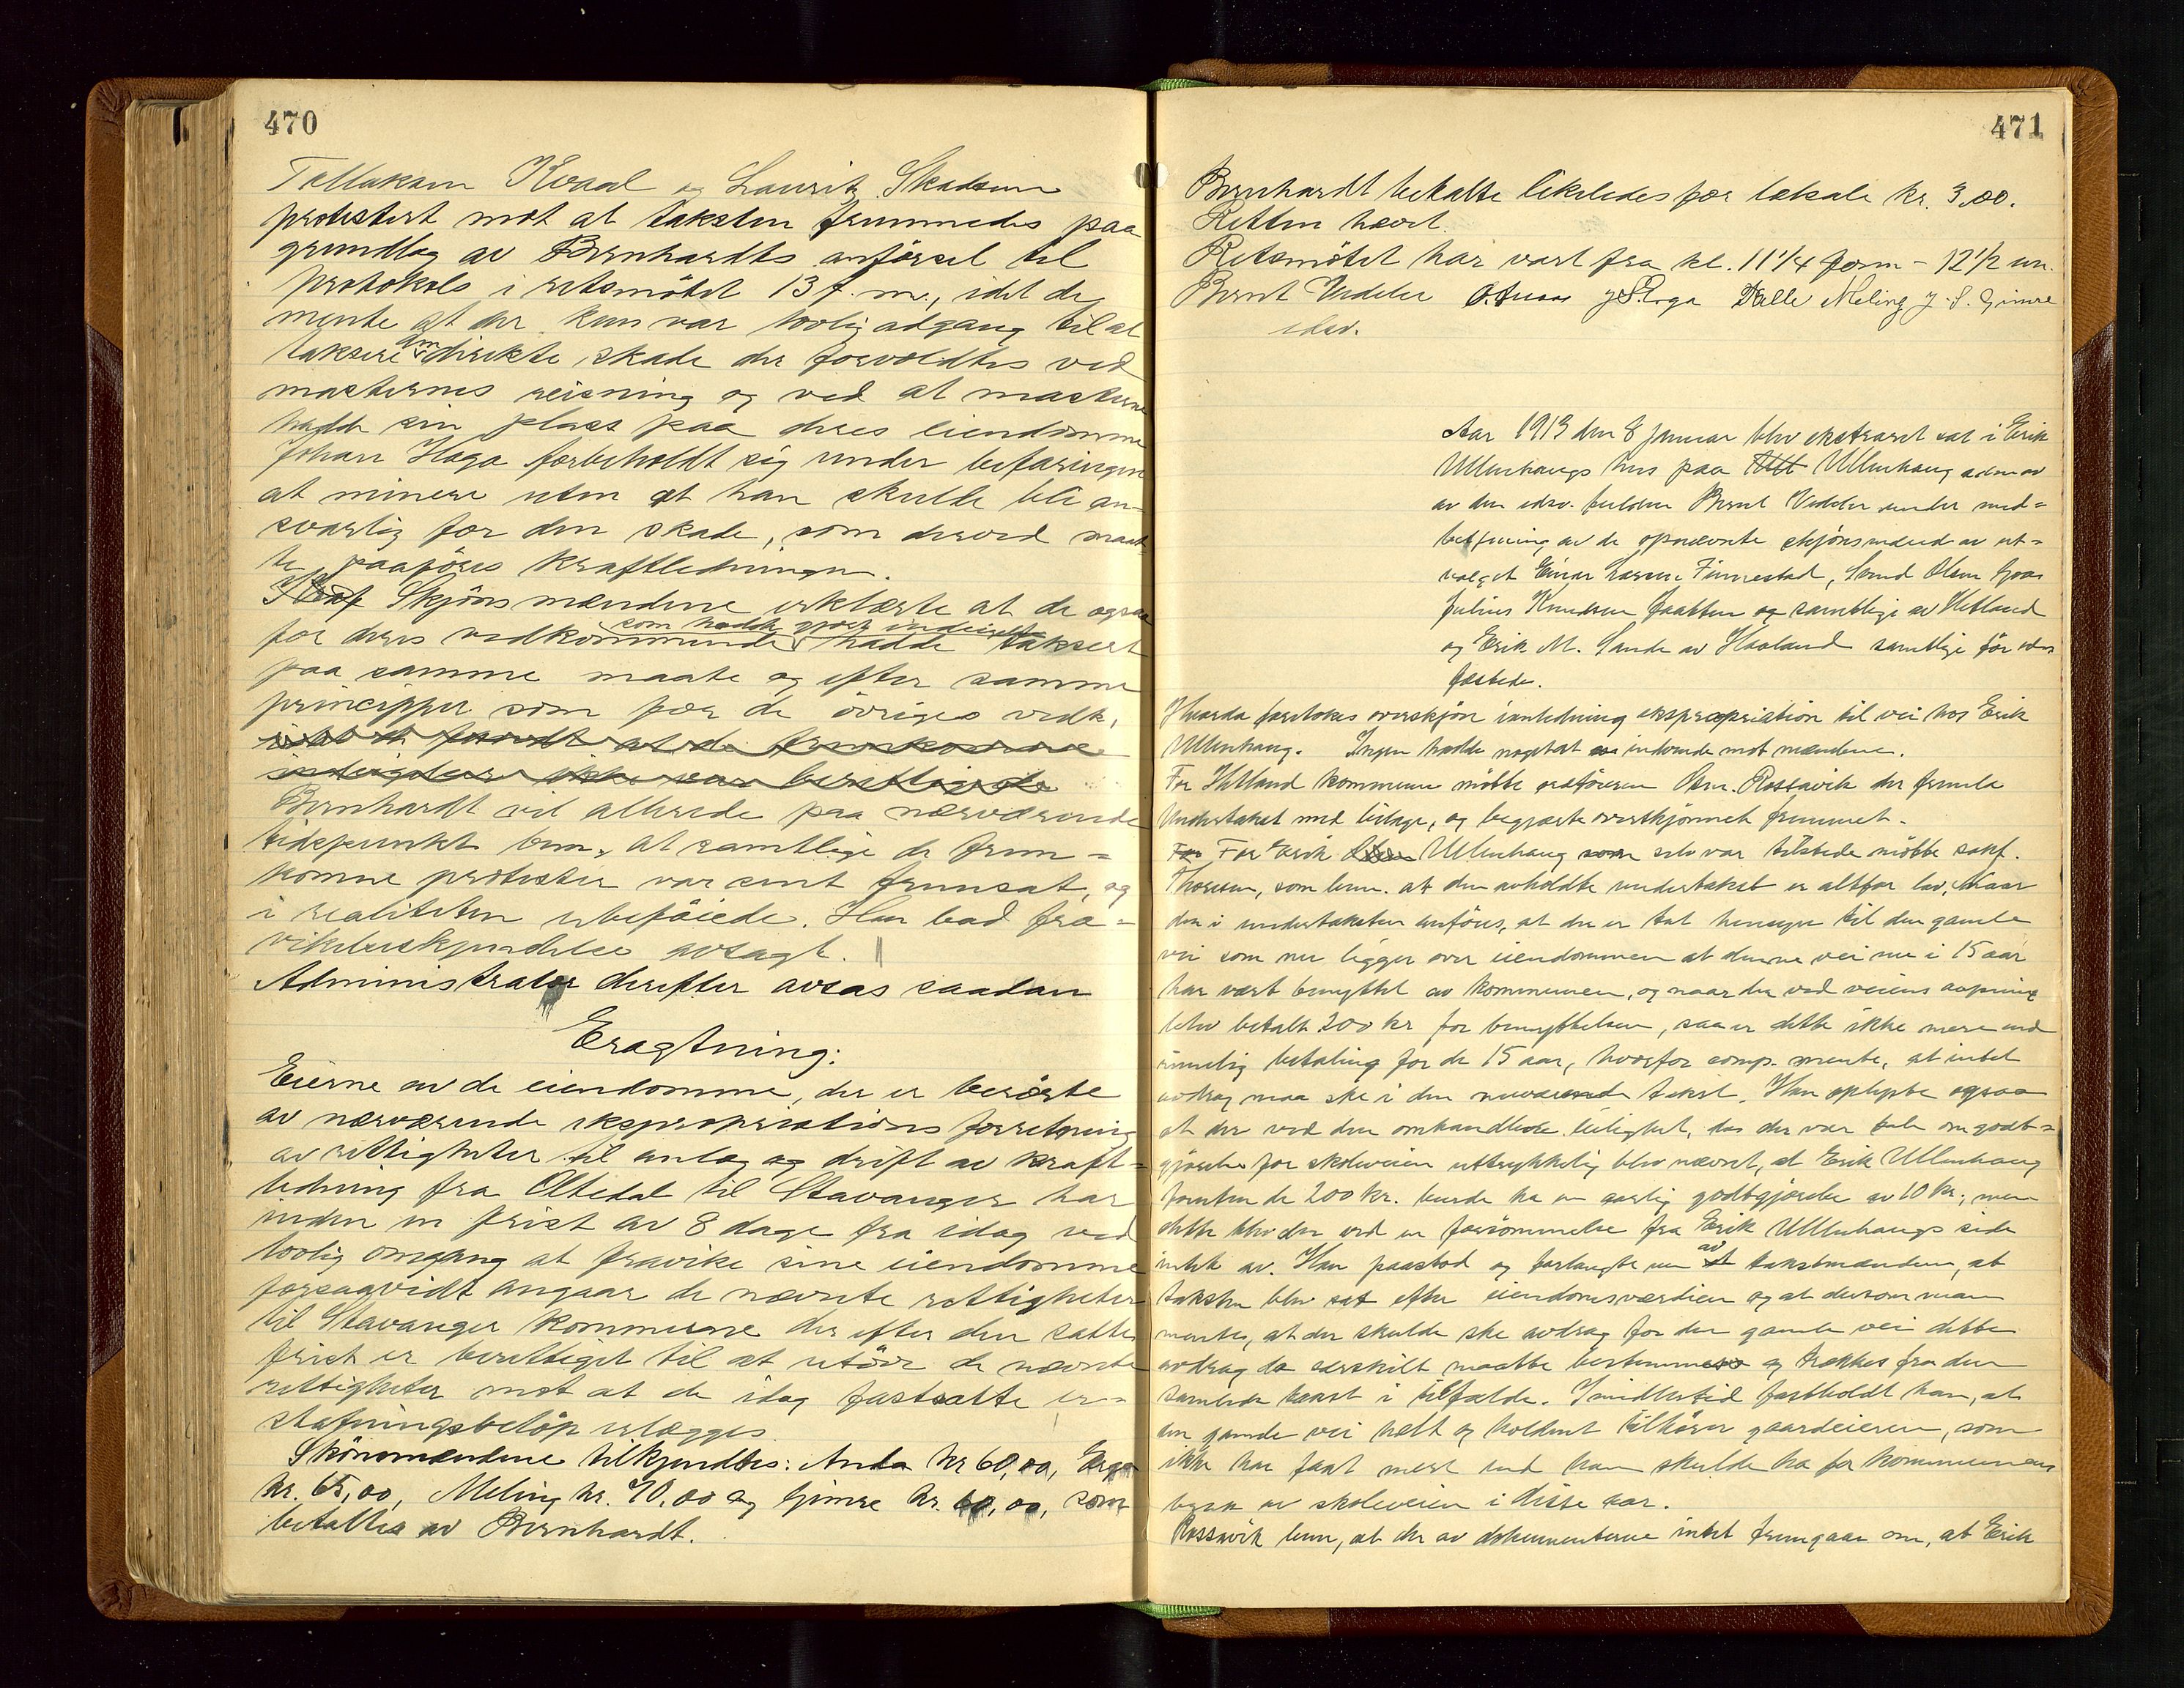 470
Tallaksen Kvaal og Lauritz Skadsem
protestert mot at taksten fremmedes paa
grundlag av Bernhardts anførsel til
protokols i retsmøtet 13 f. m., idet de
mente at der kun var lovlig adgang til at
taksere den direkte skade der forvoldtes ved
masternes reisning og ved at masterne
hadde sin plass paa deres eiendomme
Johan Haga forbeholdt sig under befaringen
at minere uten at han skulle bli an-
svarlig for den skade, som derved maat
te paaføres kraftledningen.
Skjønsmændene erklærte at de ogsaa
for deres vedkommende som hadde gjort indsigelse hadde taksert
paa samme maate og efter samme
principper som for de øvriges vedk.
Bernhardt vil allerede paa nærværende
tidspunkt bem. at samtlige de frem-
komne protester var sent fremsat, og
i realiteten ubeføiede. Han bad fra-
vikelseskjendelse avsagt.
Administrator derefter avsas saadan
Eragtning:
Eierne av de eiendomme, der er berørte
av nærværende ekspropriations forretning
av rettigheter til anlæg og drift av kraft-
ledning fra Oltedal til Stavanger har
inden en frist av 8 dage fra idag ved
lovlig omgang at fravike sine eiendomme
forsaavidt angaar de nævnte rettigheter
til Stavanger kommune der efter den satte
frist er berettiget til at utøve de nævnte
rettigheter mot at de idag fastsatte er-
statningsbeløp erlægges.
Skönsmændene tilkjendtes: Anda kr 60,00, Erga
kr. 65,00, Meling kr. 70,00 og Gimre kr. 60,00, som
betaltes av Bernhardt.
471
Bernhardt betalte likeledes for lokale kr. 3.00.
Retten hævet.
Retsmøtet har vart fra kl. 11 1/4 form - 12 1/2 em.
Bernt Vedeler J S Erga Dalle Meling J. S. Gimre
edsv.
Aar 1913 den 8 januar blev ekstraret sat i Erik
Ullenhaugs hus paa Ullenhaug adm av
av den edsv. fuldm Bernt Vedeler under med-
betjening av de opnævnte skjønsmænd av ut-
valget Einar Larsen Finnestad, Svend Olsen Goa
Julius Knudsen Jaatten og samtlige av Hetland
og Erik M. Sande av Haaland samtlige før eds
fæstede.
Hvorda foretokes overskjøn i anledning ekspropriation til vei hos Erik
Ullenhaug. Ingen hadde noget at indvende mot mændene.
For Hetland kommune møtte ordføreren Rossavik der fremla
Undertakst med bilage, og begjærte overskjønnet fremmet.
For Erik Ullenhaug som selv var tilstede møtte sakf.
Thorsen, som bem. at den avholdte undertakst er altfor lav. Naar
der i undertaksten anføres, at der er tat hensyn til den gamle
vei som nu ligger over eiendommen at denne vei nu i 15 aar
har vært benyttet av kommunen, og naar der ved veiens aapning
blev betalt 200 kr for benyttelsen, saa er dette ikke mere end
rimelig betaling for de 15 aar, hvorfor comp. mente, at intet
avdrag maa ske i den nuværende takst. Han oplyste ogsaa
at der ved den omhandlede leilighet, da der var tale om godt-
gjørelse for skoleveien uttrykkelig blev nævnt, at Erik Ullenhaug
foruten de 200 kr. burde ha en aarlig godtgjørelse av 10 kr., men
dette blev der ved en forsømmelse fra Erik Ullenhaugs side
intet av. Han paastod og forlangte nu av takstmændene, at
taksten blev sat efter eiendomsværdien og at dersom man
mentes, at der skulde ske avdrag for den gamle vei dette
avdrag da særskilt maatte bestemmes og trækkes fra den
samlede takst i tilfælde. Imidlertid fastholdt han, at
den gamle vei helt og holdent tilhører gaardeieren, som
ikke har faat mere end han skulde ha for kommunens
bruk av skoleveien i disse aar.
Rossavik bem, at der av dokumenterne intet fremgaar om, at Erik